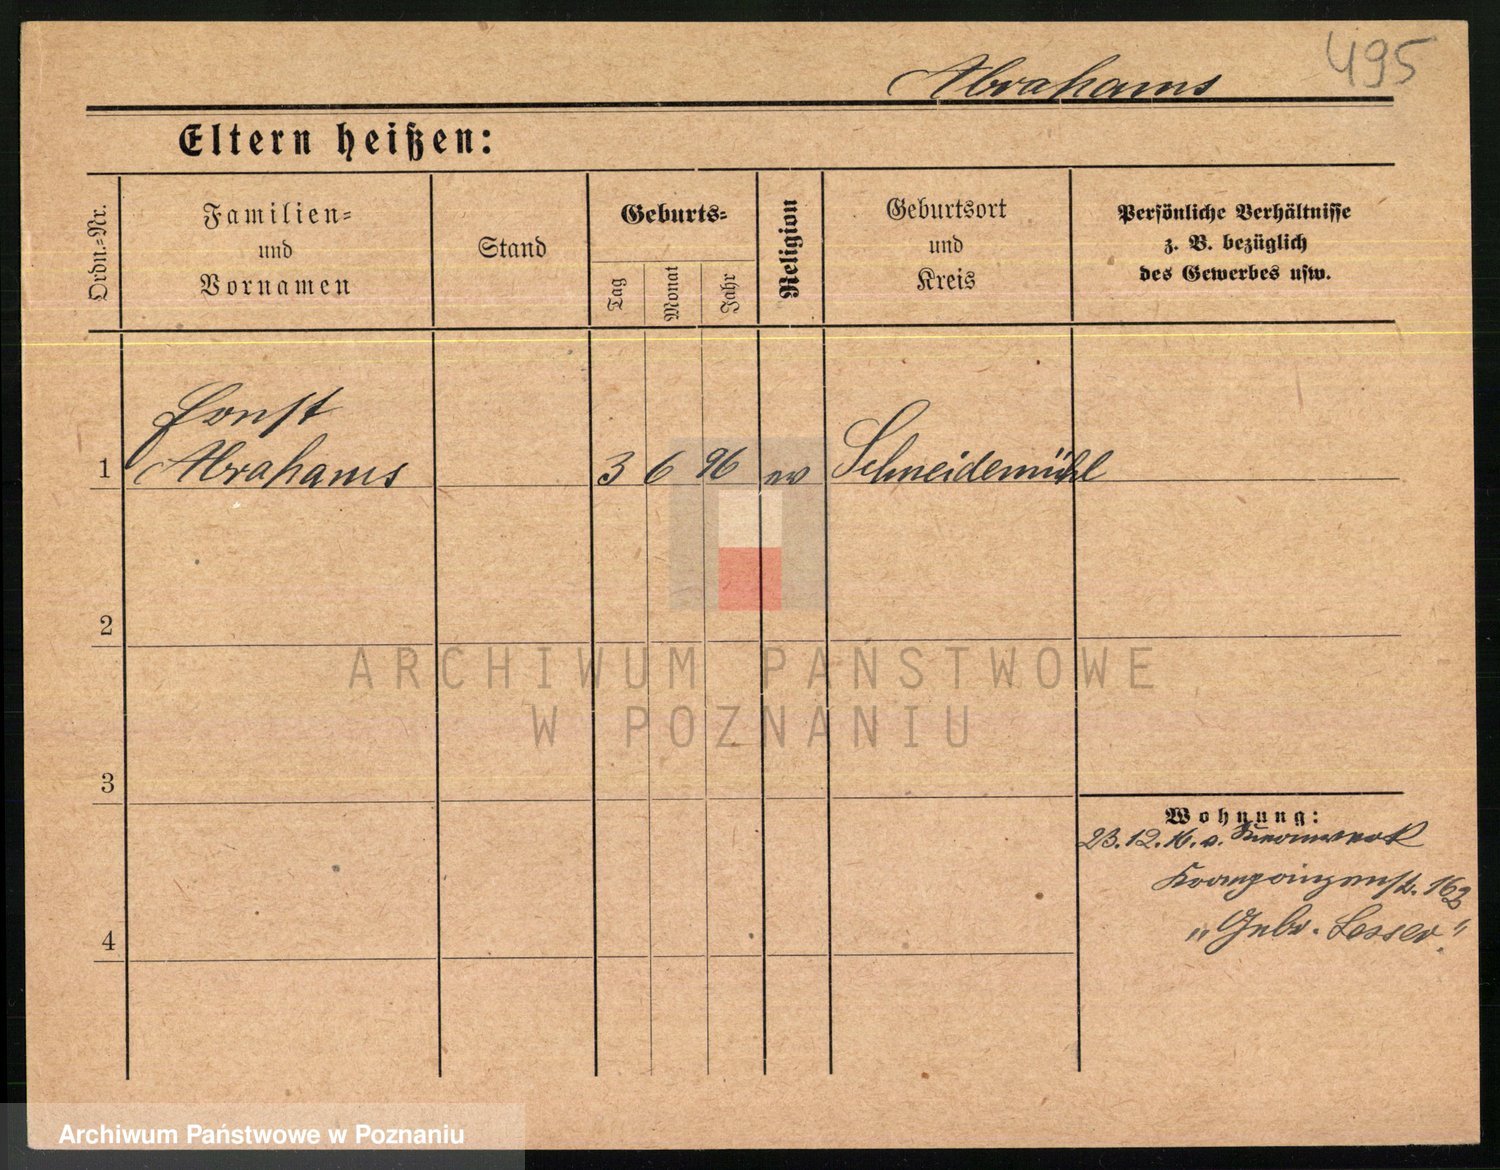 495
Abrahams
Eltern heißen:
Ordn.=Nr.
Familien=
und
Vornamen
Stand
Geburts=
Tag
Monat
Jahr
Religion
Geburtsort
und
Kreis
Persönliche Verhältnisse
z. B. bezüglich
des Gewerbes usw.
1
Ernst
Abrahams
3 6 96 ev Schneidemühl
2
3
4
Wohnung:
23.12.16. v.
Kronprinzenstr. 162
"Gebr. Lesser."
ARCHIWUM PAŃSTWOWE
W POZNANIU
Archiwum Państwowe w Poznaniu